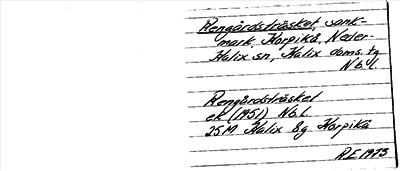 Rengårdsträsket, sank-
mark, Korpikå, Neder-
Kalix sn, Kalix doms. tg
Nb.l.
Rengårdsträsket
ek (1951) Nb.l.
25M Kalix 8g Korpikå
R.E. 1973